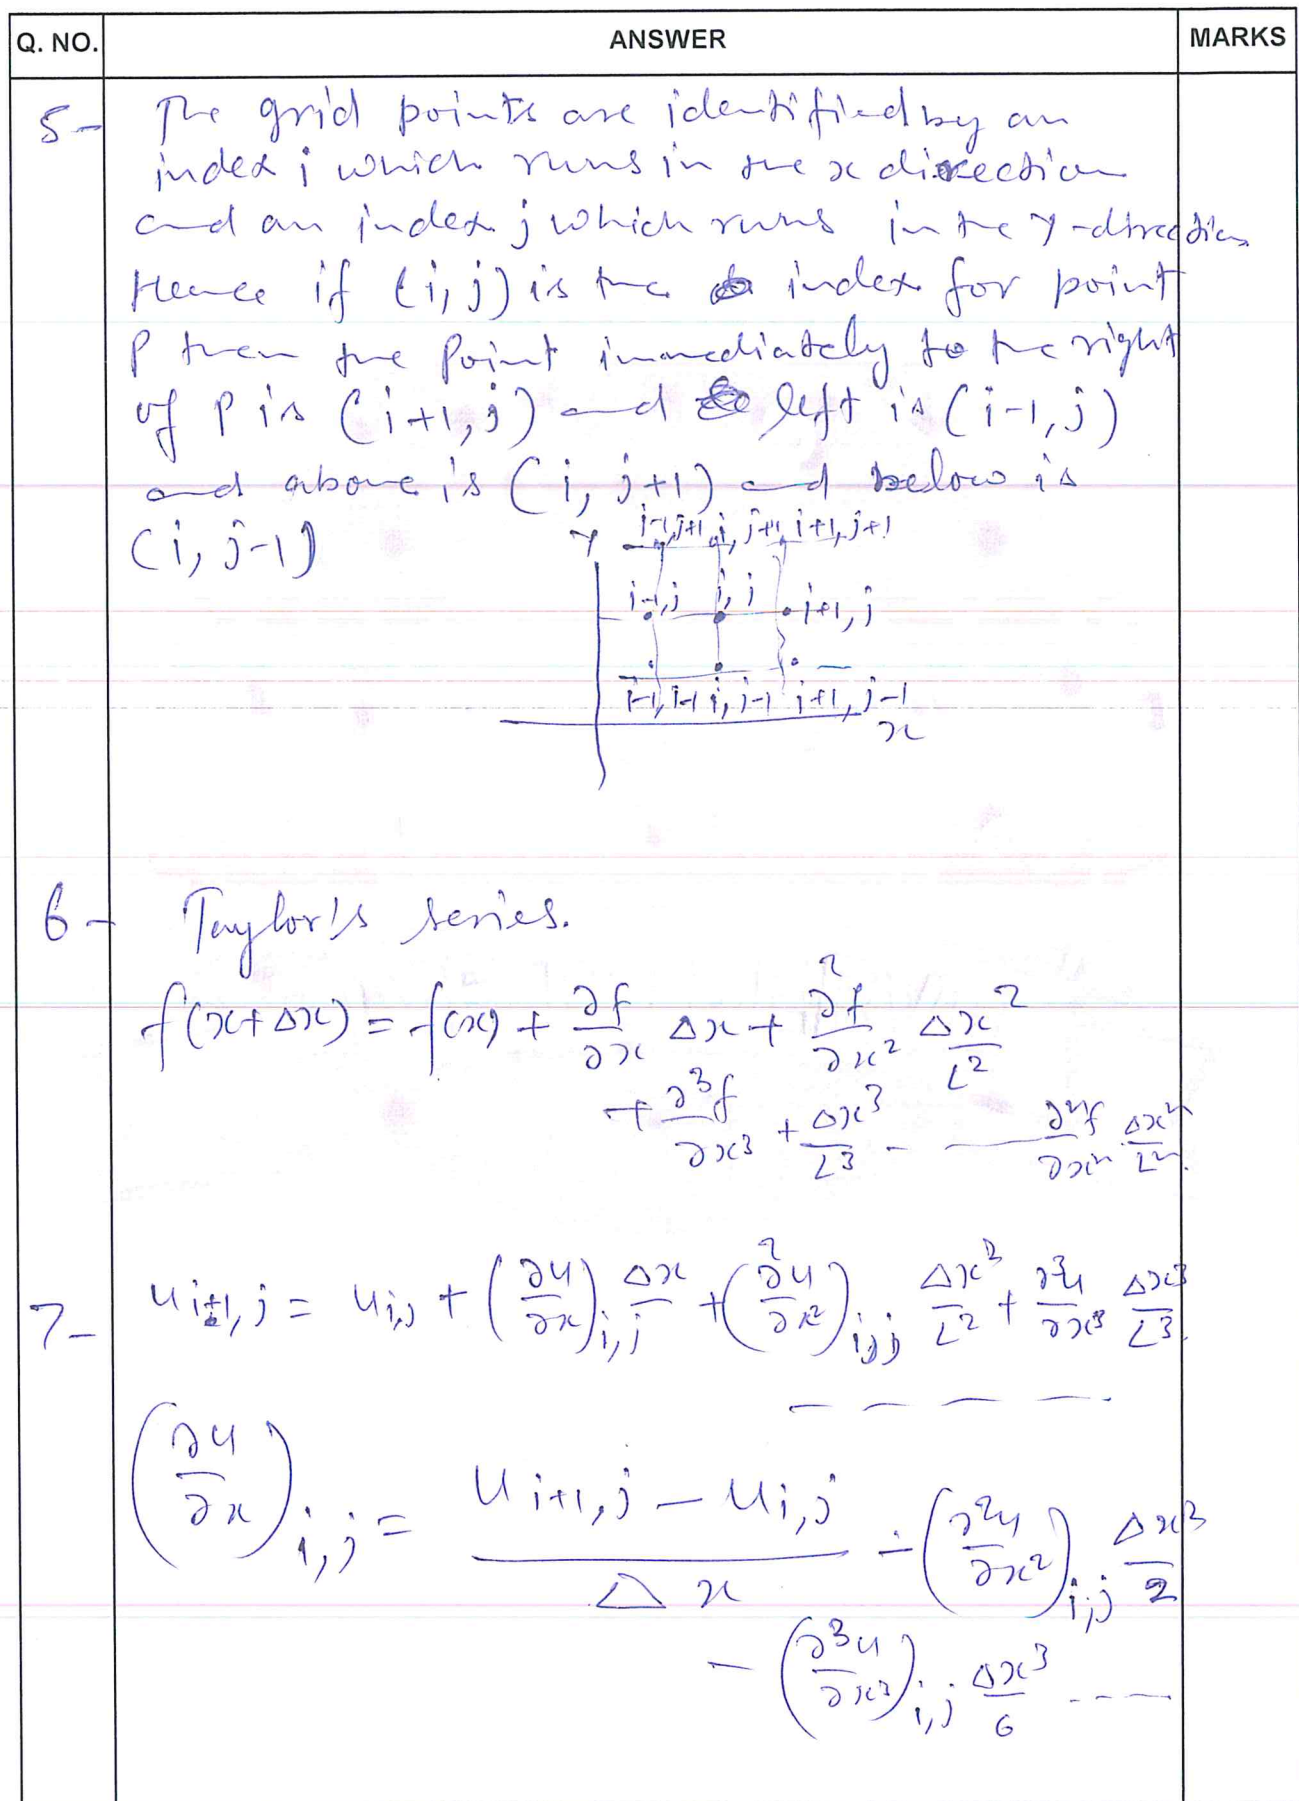 Q. NO. ANSWER MARKS
5- The grid points are identified by an
index i which runs in the x direction
and an index j which runs in the y-direction
Hence if (i, j) is the index for point
P then the point immediately to the right
of P is (i+1, j) and left is (i-1, j)
and above is (i, j+1) and below is
(i, j-1)
Y i-1,j+1 i, j+1 i+1, j+1
i-1,j i, j i+1, j
i-1, j-1 i, j-1 i+1, j-1
x
6- Taylor's series.
f(x+Δx) = f(x) + ∂f/∂x Δx + ∂²f/∂x² Δx²/∠2
+ ∂³f/∂x³ + Δx³/∠3 - — ∂ⁿf/∂xⁿ Δxⁿ/∠n.
7- u i+1, j = u i,j + (∂u/∂x) i,j Δx + (∂²u/∂x²) i,j Δx²/∠2 + ∂³u/∂x³ Δx³/∠3.
— — — — —
(∂u/∂x) i,j = (u i+1,j − u i,j)/Δx − (∂²u/∂x²) i,j Δx³/2
− (∂³u/∂x³) i,j Δx³/6 ----